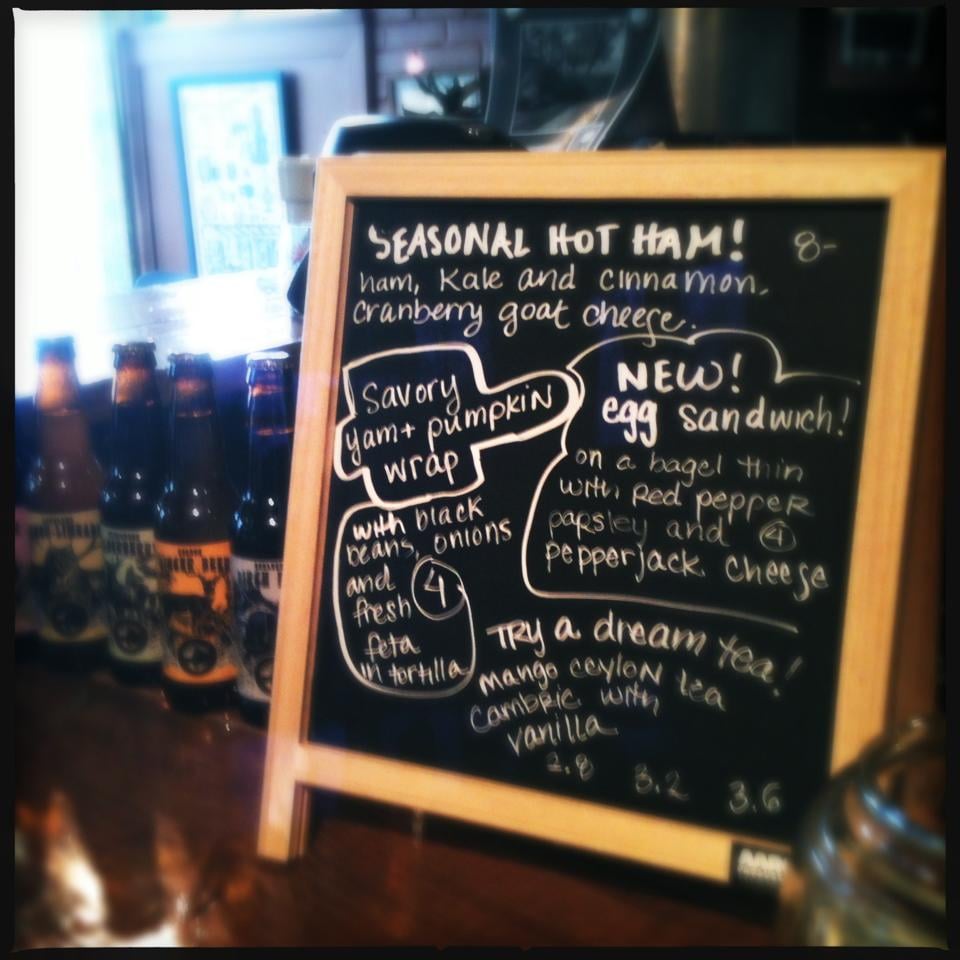 SEASONAL HOT HAM! 8-
ham, kale and cinnamon,
cranberry goat cheese.
Savory
yam + pumpkin
wrap
with black
beans, onions
and 4
fresh
feta
in tortilla
NEW!
egg sandwich!
on a bagel thin
with red pepper
papsley and 4
pepperjack cheese
TRY a dream tea!
mango ceylon tea
cambric with
vanilla
2.8 3.2 3.6
GINGER BEER
BIRCH